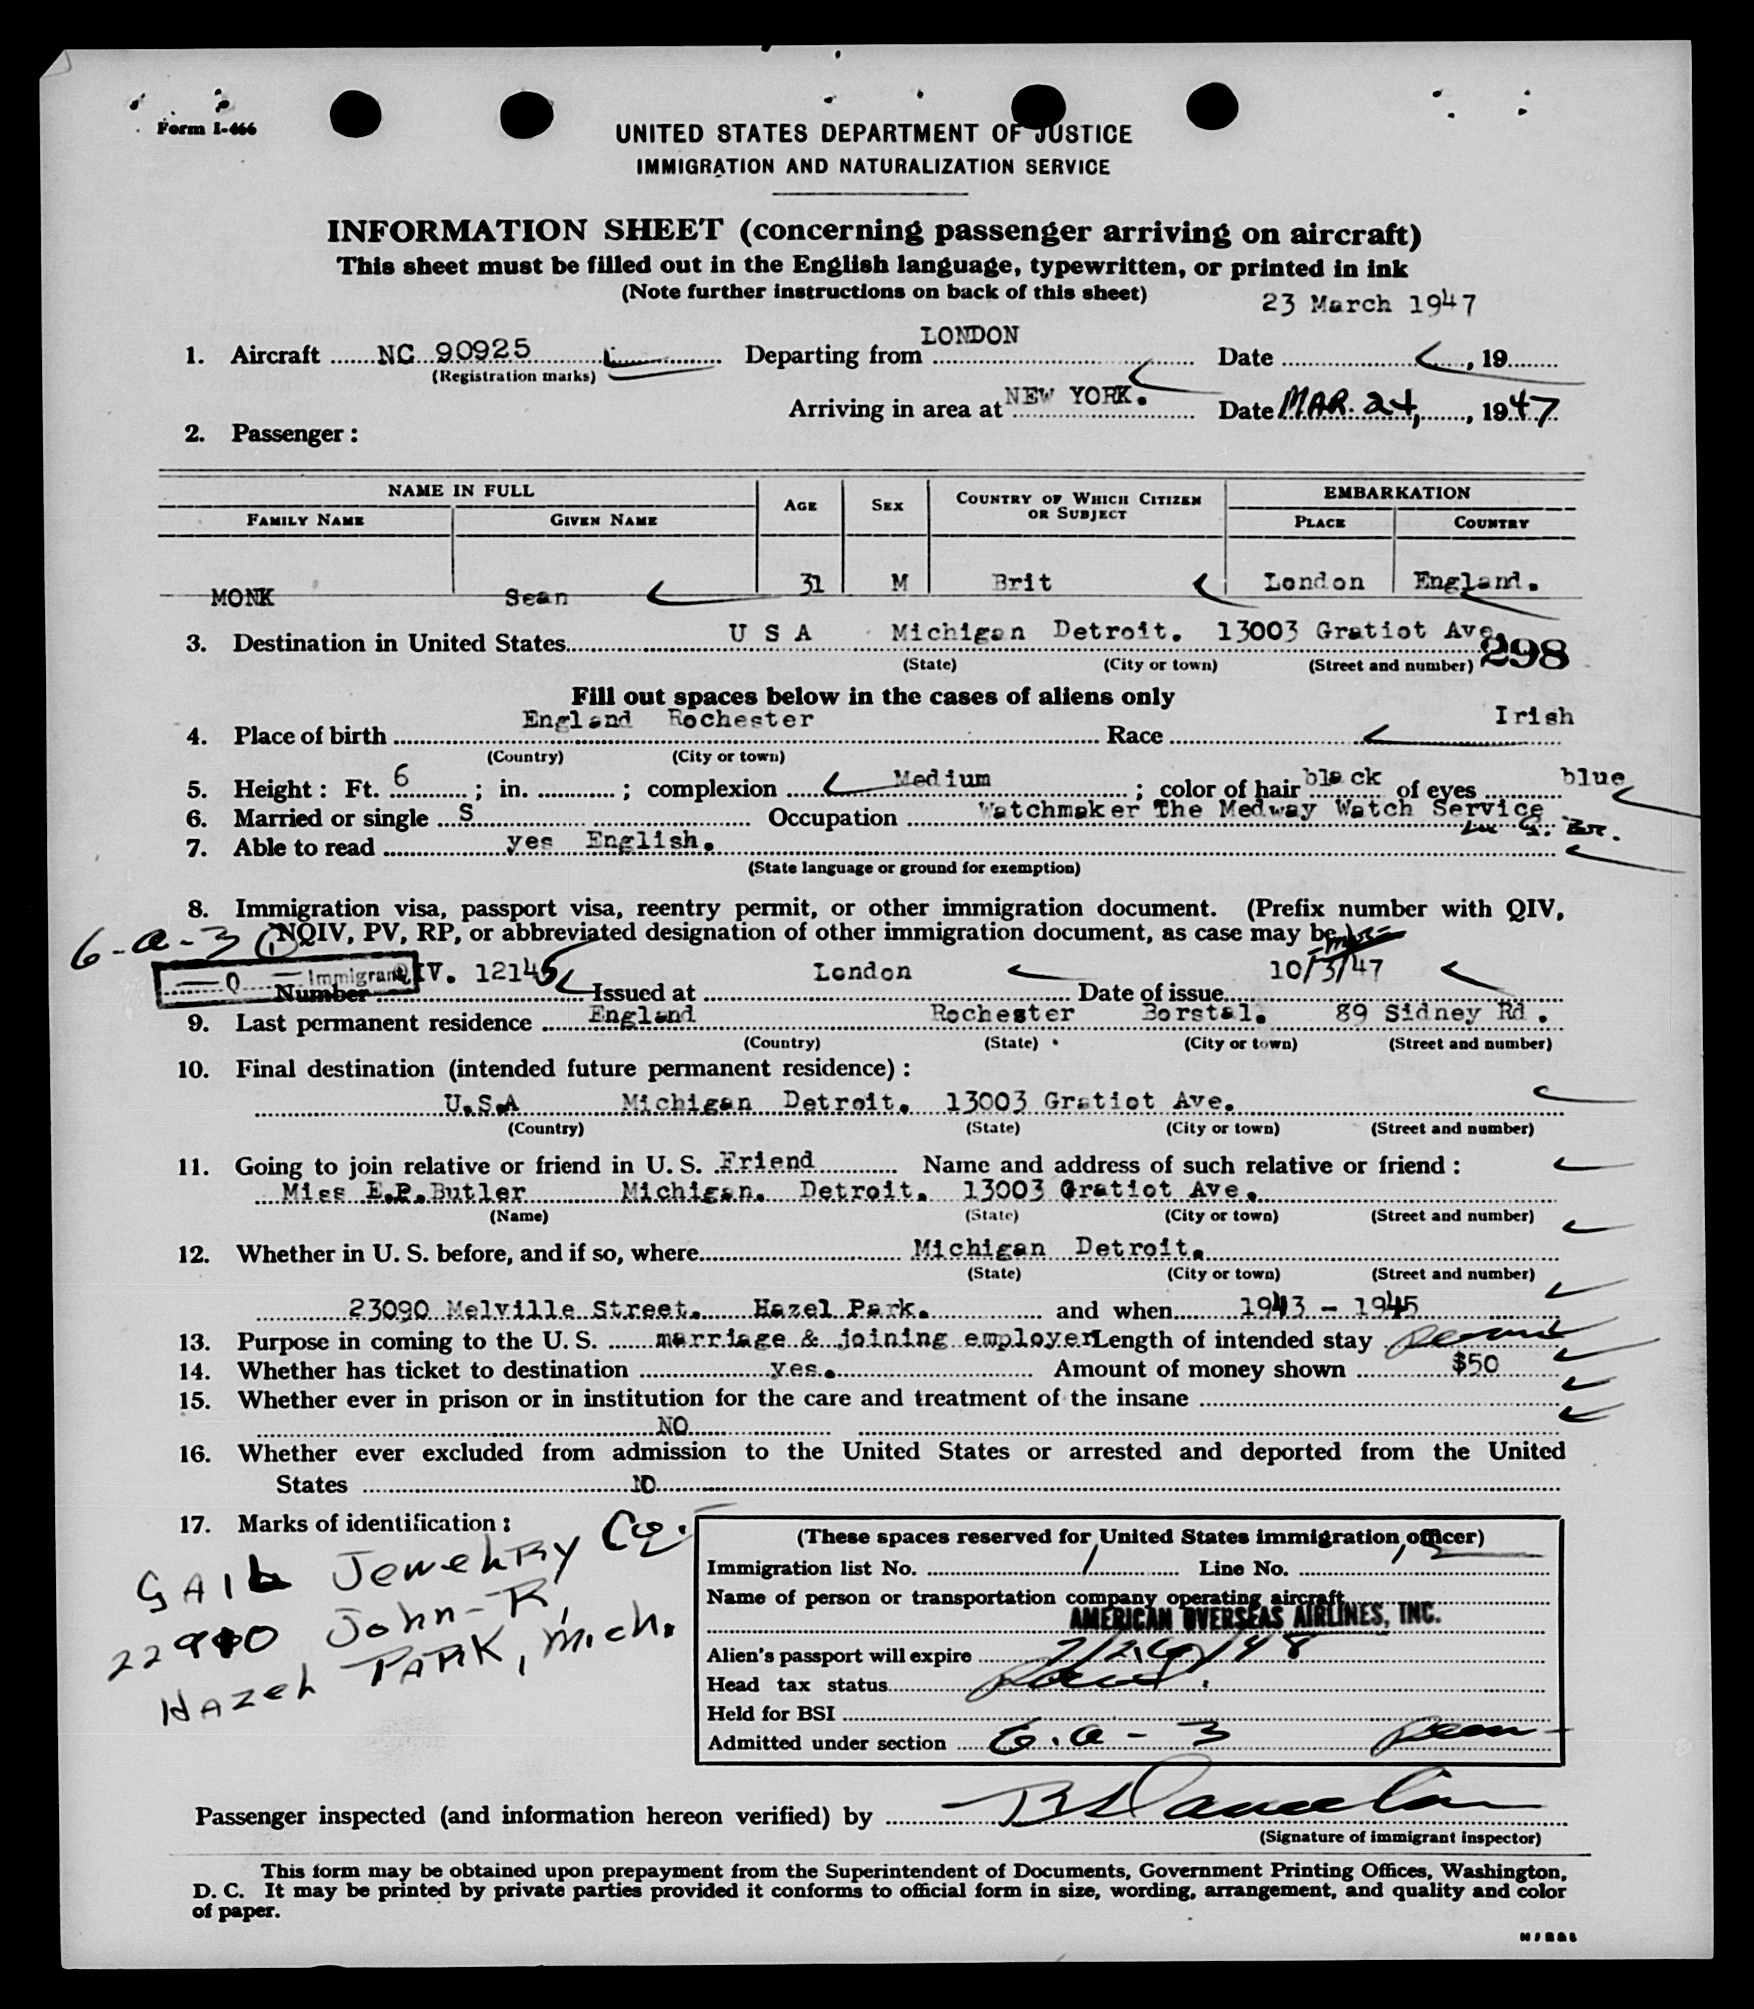 Form I-466
UNITED STATES DEPARTMENT OF JUSTICE
IMMIGRATION AND NATURALIZATION SERVICE
INFORMATION SHEET (concerning passenger arriving on aircraft)
This sheet must be filled out in the English language, typewritten, or printed in ink
(Note further instructions on back of this sheet)
23 March 1947
1. Aircraft NC 90925 Departing from LONDON Date , 19
(Registration marks)
Arriving in area at NEW YORK. Date MAR. 24, , 1947
2. Passenger :
NAME IN FULL AGE SEX COUNTRY OF WHICH CITIZEN OR SUBJECT EMBARKATION
FAMILY NAME GIVEN NAME PLACE COUNTRY
MONK Sean 31 M Brit London England.
3. Destination in United States U S A Michigan Detroit. 13003 Gratiot Ave.
(State) (City or town) (Street and number) 298
Fill out spaces below in the cases of aliens only
4. Place of birth England Rochester Race Irish
(Country) (City or town)
5. Height : Ft. 6 ; in. ; complexion Medium ; color of hair black of eyes blue
6. Married or single S Occupation Watchmaker The Medway Watch Service
7. Able to read yes English.
(State language or ground for exemption)
8. Immigration visa, passport visa, reentry permit, or other immigration document. (Prefix number with QIV,
6-a-3 NQIV, PV, RP, or abbreviated designation of other immigration document, as case may be.)
Q — Immigrant
Number QIV. 12145 Issued at London Date of issue 10/3/47
9. Last permanent residence England Rochester Borstal. 89 Sidney Rd.
(Country) (State) (City or town) (Street and number)
10. Final destination (intended future permanent residence) :
U.S.A Michigan Detroit. 13003 Gratiot Ave.
(Country) (State) (City or town) (Street and number)
11. Going to join relative or friend in U. S. Friend Name and address of such relative or friend :
Miss E.P.Butler Michigan. Detroit. 13003 Gratiot Ave.
(Name) (State) (City or town) (Street and number)
12. Whether in U. S. before, and if so, where Michigan Detroit.
(State) (City or town) (Street and number)
23090 Melville Street. Hazel Park. and when 1943 - 1945
13. Purpose in coming to the U. S. marriage & joining employer Length of intended stay
14. Whether has ticket to destination yes. Amount of money shown $50
15. Whether ever in prison or in institution for the care and treatment of the insane
NO
16. Whether ever excluded from admission to the United States or arrested and deported from the United
States NO
17. Marks of identification :
GAIL Jewelry Co.
22910 John-R,
Hazel PARK, Mich.
(These spaces reserved for United States immigration officer)
Immigration list No. 1 Line No.
Name of person or transportation company operating aircraft
AMERICAN OVERSEAS AIRLINES, INC.
Alien's passport will expire 7/26/48
Head tax status
Held for BSI
Admitted under section 6.a-3
Passenger inspected (and information hereon verified) by
(Signature of immigrant inspector)
This form may be obtained upon prepayment from the Superintendent of Documents, Government Printing Offices, Washington,
D. C. It may be printed by private parties provided it conforms to official form in size, wording, arrangement, and quality and color
of paper.